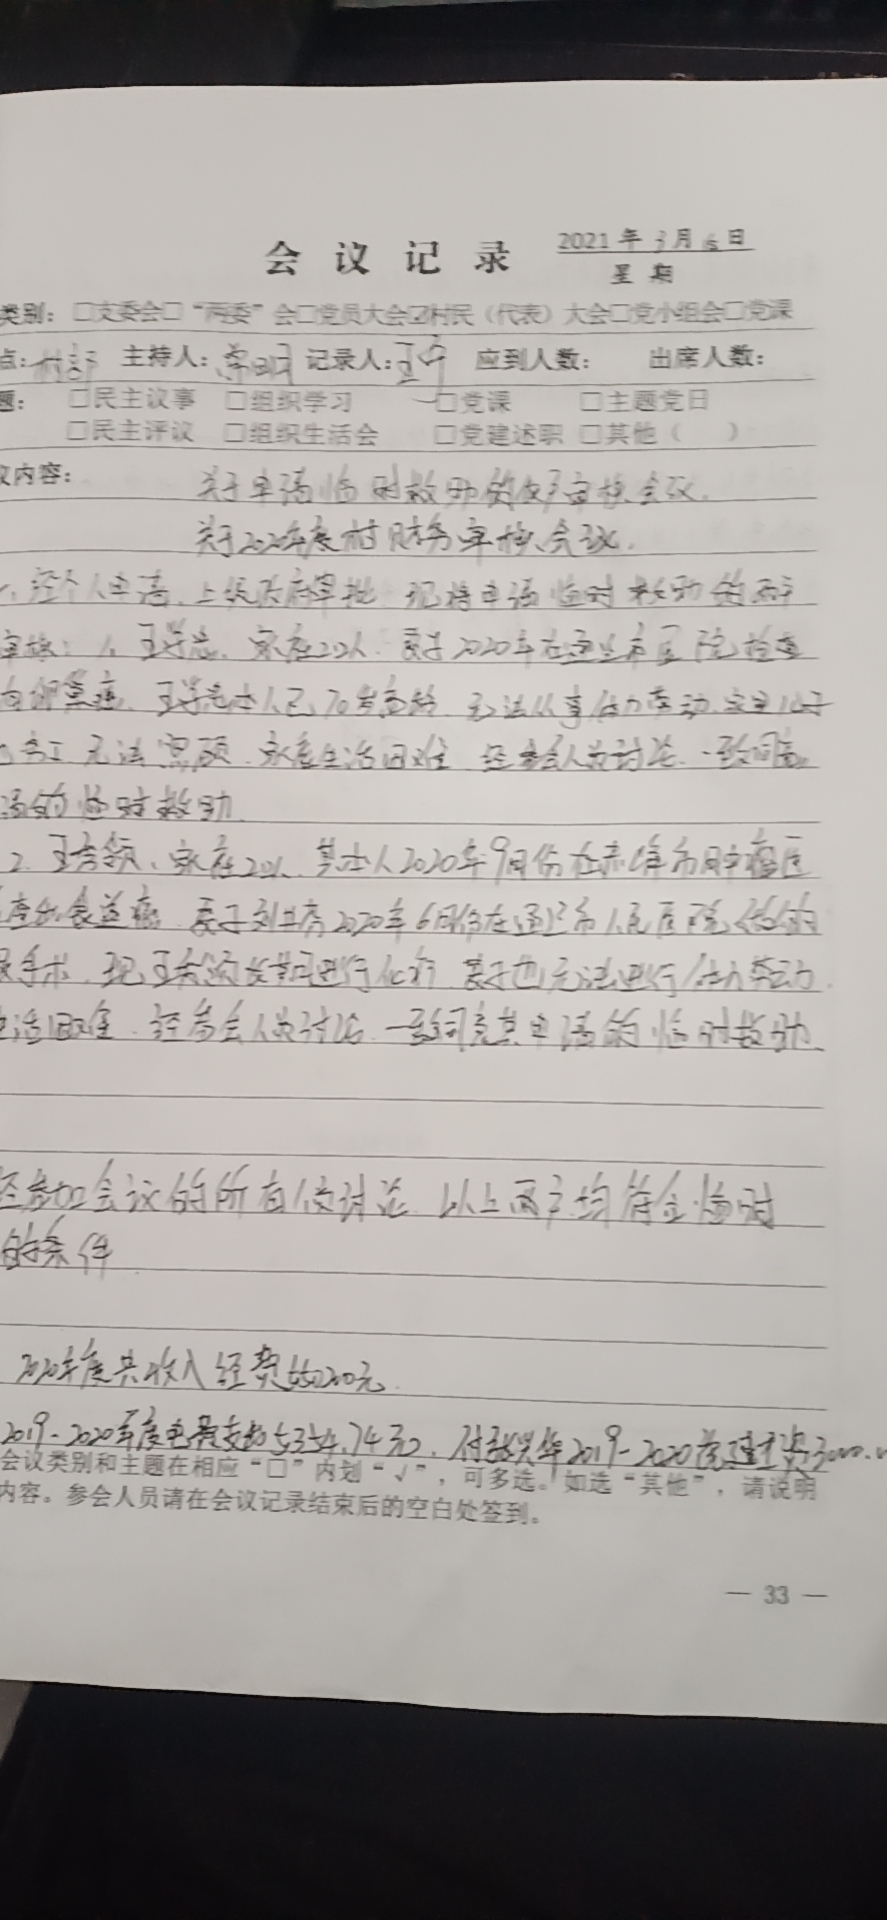 会 议 记 录 2021 年 3 月 6 日
星 期
类别：□支委会□“两委”会□党员大会☑村民（代表）大会□党小组会□党课
点：村部 主持人： 记录人：王 应到人数： 出席人数：
题： □民主议事 □组织学习 □党课 □主题党日
□民主评议 □组织生活会 □党建述职 □其他（ ）
议内容： 关于申请临时救助的 审核会议.
关于2020年度村财务审核会议.
一、经个人申请、上级政府审批 现将申请临时救助的两户
审核： 1、王 、家庭2口人、妻子2020年在 市医院检查
卵巢癌、王 本人已70岁高龄、无法从事体力劳动、 儿子
打工 无法 、家庭生活困难 经参会人员讨论、一致同意
请的临时救助
2、王 领、家庭2口人 其本人2020年9月份在赤峰市肿瘤医
查出食道癌 妻子刘 2020年6月份在 市人民医院做的
手术、现王 领 进行化疗 妻子也无法进行体力劳动、
生活困难、经参会人员讨论、一致同意其申请的临时救助、
经参加会议的所有人员讨论 以上两户均符合临时
的条件
2020年度共收入经费 元
2019-2020年度电费支出5354.74元、付 华2019-2020 工资3000.
会议类别和主题在相应“□”内划“√”，可多选。如选“其他”，请说明
内容。参会人员请在会议记录结束后的空白处签到。
— 33 —